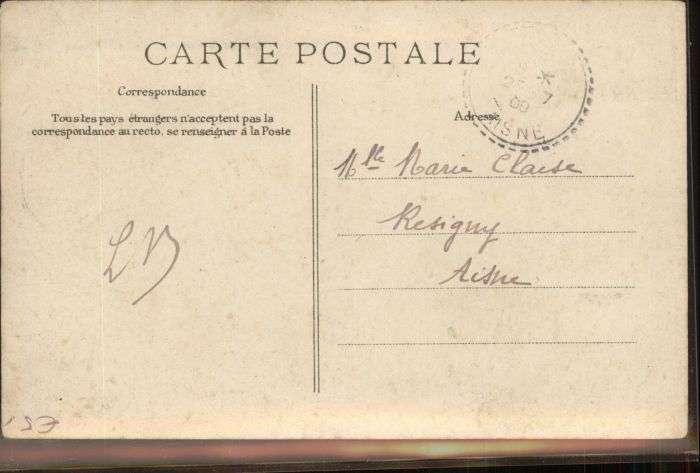 CARTE POSTALE
Correspondance
Tous les pays étrangers n'acceptent pas la
correspondance au recto, se renseigner á la Poste
Adresse
AISNE
Mlle Marie Claise
Resigny
Aisne
LB